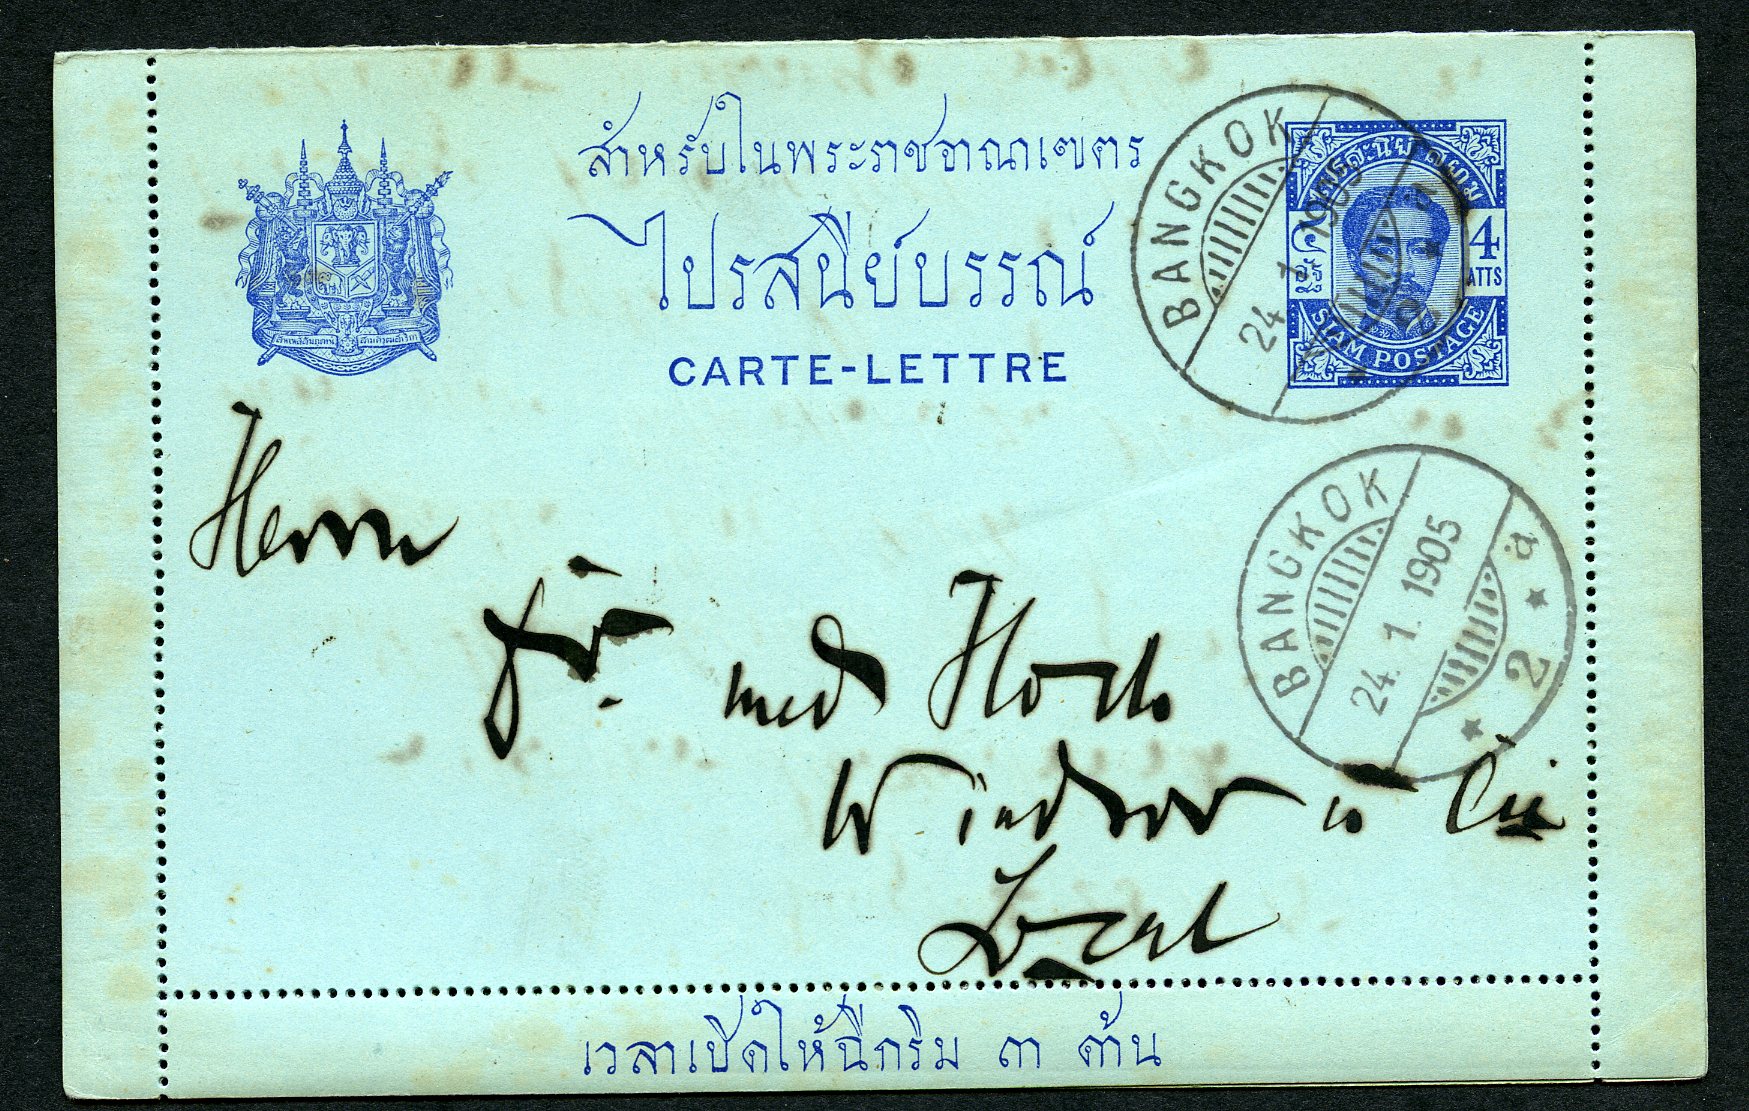 สำหรับในพระราชอาณาเขตร
ไปรสนีย์บรรณ์
CARTE-LETTRE
๔ 4
อัฐ ATTS
SIAM POSTAGE
BANGKOK
24. 1. 1905
2
BANGKOK
24. 1. 1905
ä
2
Herrn
Dr. med
Windsor u Cie
Local
เวลาเปิดให้ฉีกริม ๓ ด้าน